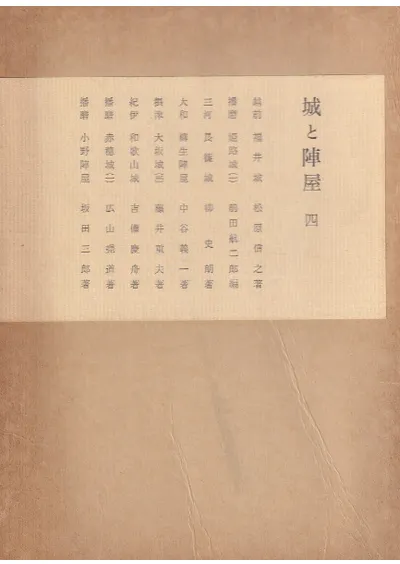 城と陣屋 四
越前 福井城 松原信之著
播磨 姫路城(一) 前田航二郎編
三河 長篠城 柿史朗著
大和 柳生陣屋 中谷義一著
摂津 大坂城(三) 藤井重夫著
紀伊 和歌山城 吉備慶舟著
播磨 赤穂城(一) 広山堯道著
播磨 小野陣屋 坂田三郎著